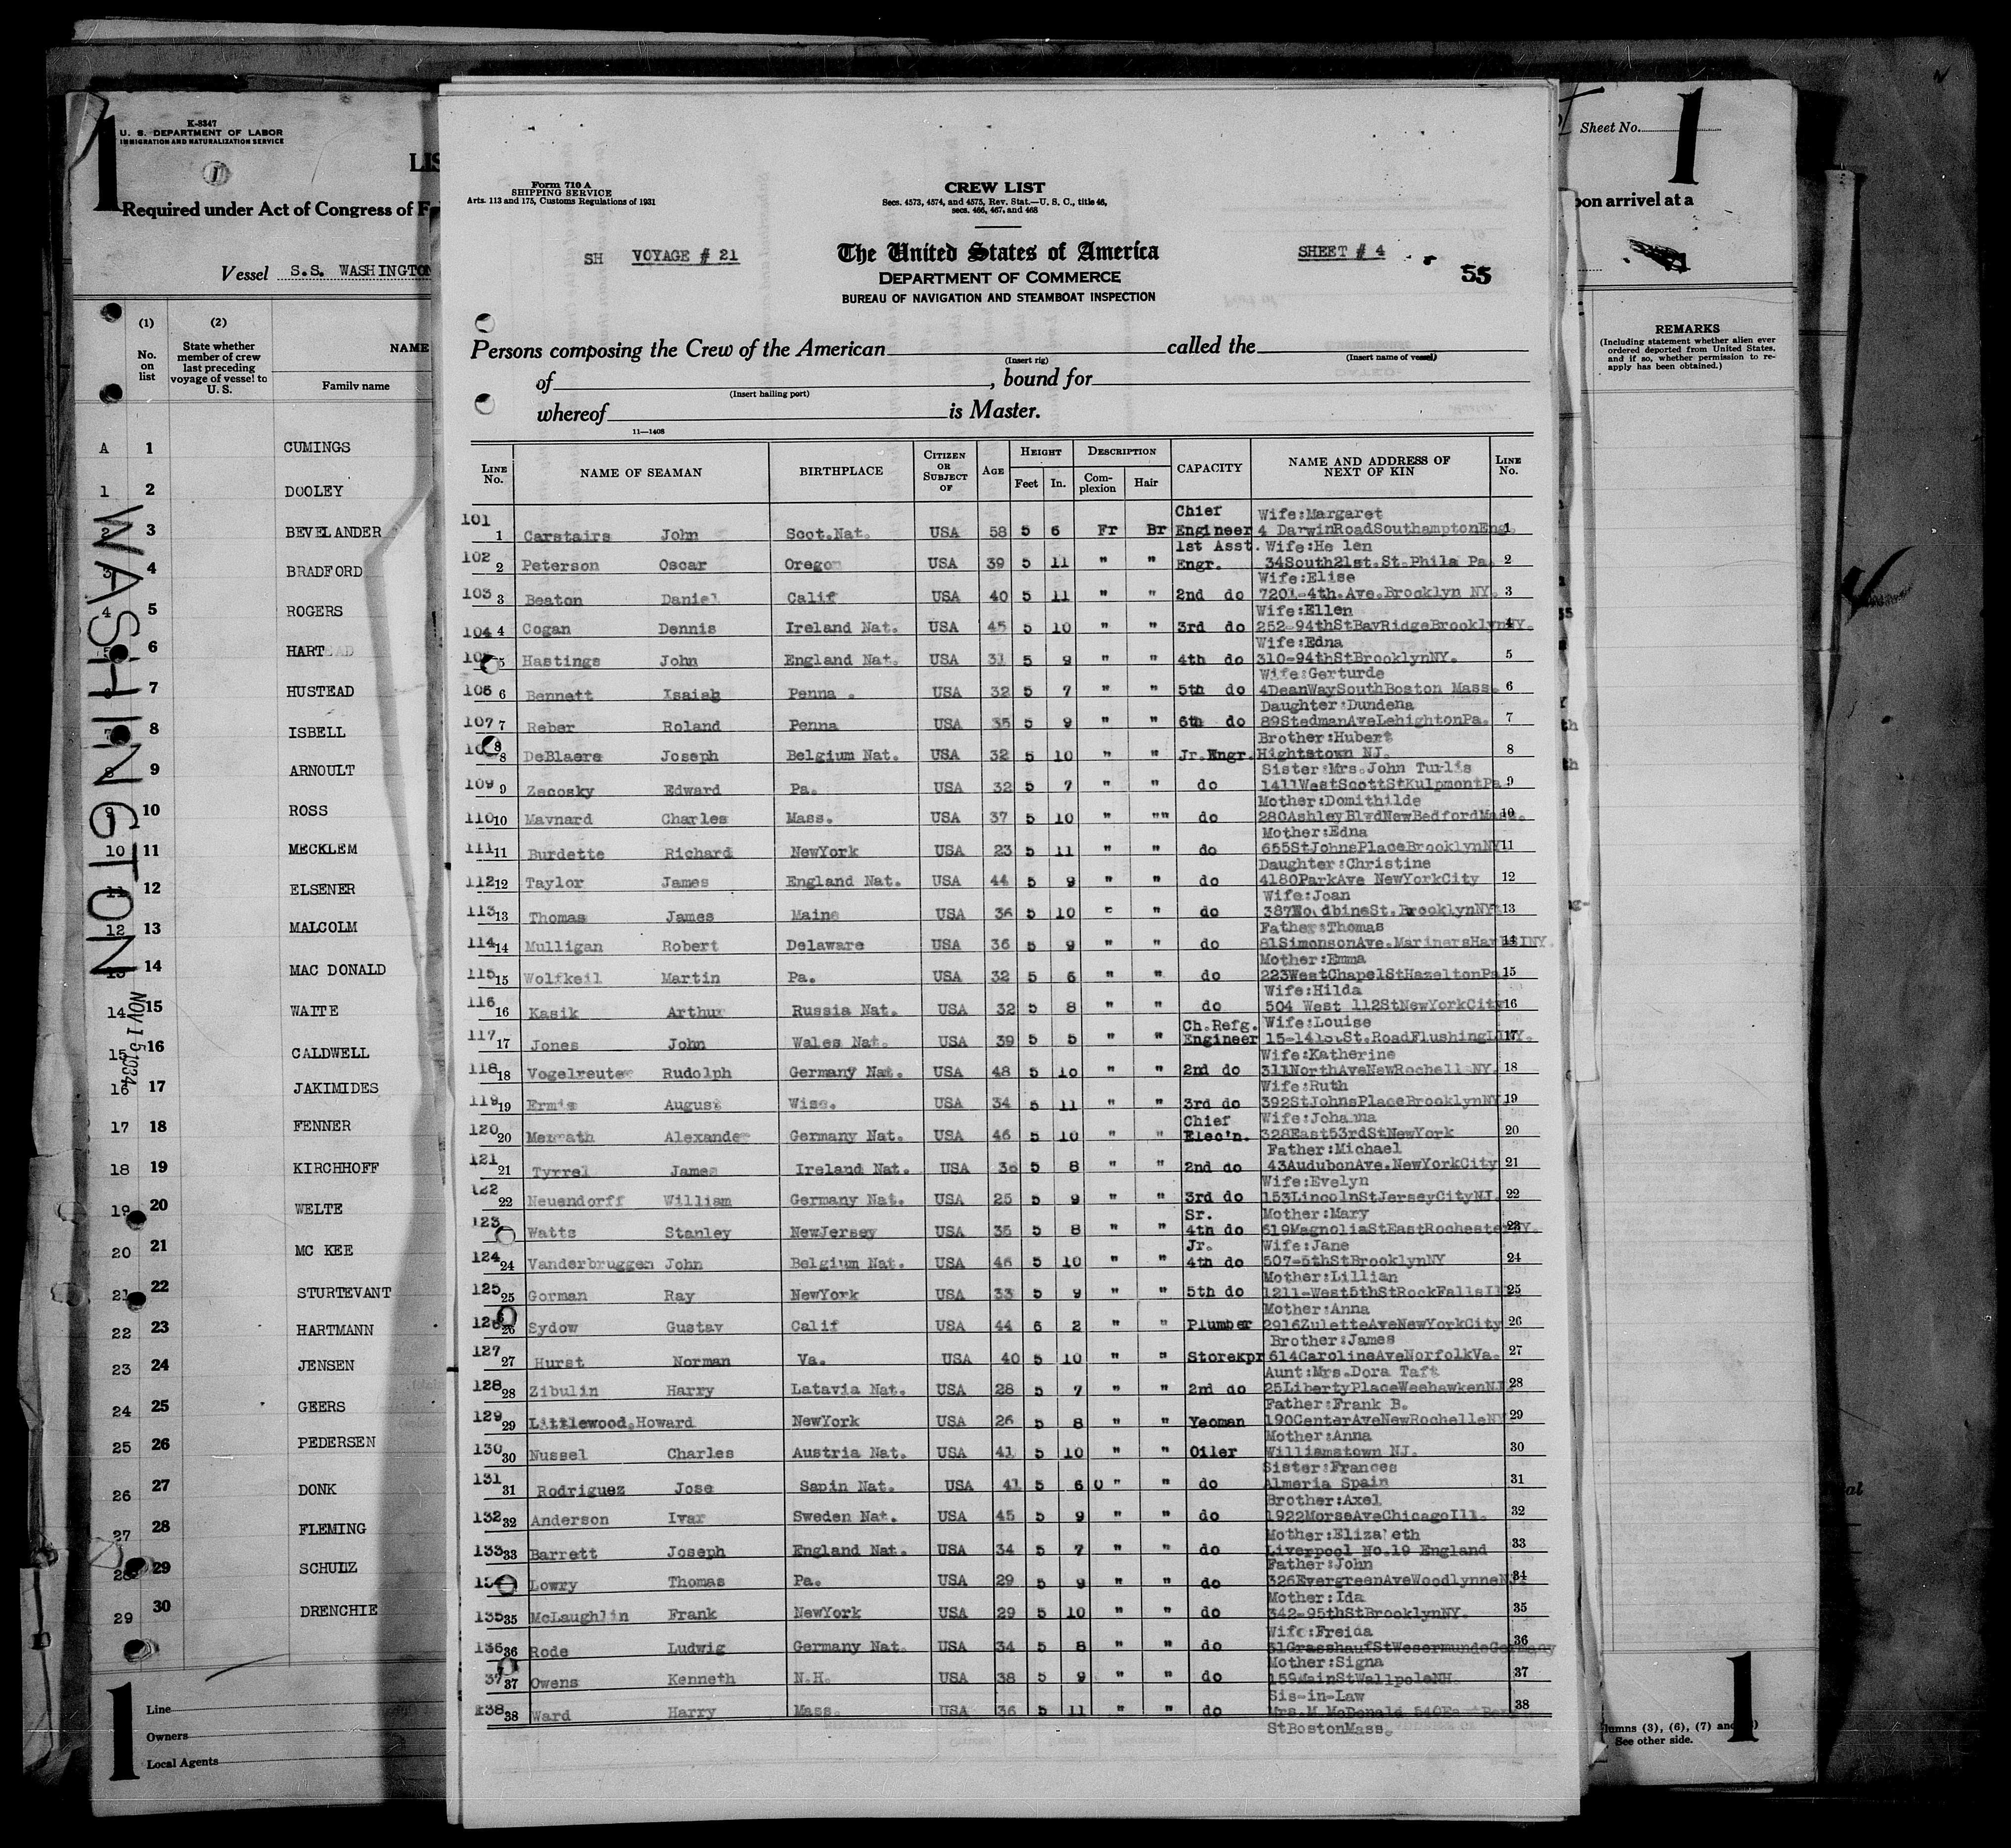 1
K-8347
U. S. DEPARTMENT OF LABOR
IMMIGRATION AND NATURALIZATION SERVICE
1
LIS
Required under Act of Congress of F
Vessel S.S. WASHINGTON
(1) (2)
No. on list
State whether member of crew last preceding voyage of vessel to U. S.
NAME
Family name
A 1 CUMINGS
1 2 DOOLEY
2 3 BEVELANDER
3 4 BRADFORD
4 5 ROGERS
5 6 HART
6 7 HUSTEAD
7 8 ISBELL
8 9 ARNOULT
9 10 ROSS
10 11 MECKLEM
11 12 ELSENER
12 13 MALCOLM
13 14 MAC DONALD
14 15 WAITE
15 16 CALDWELL
16 17 JAKIMIDES
17 18 FENNER
18 19 KIRCHHOFF
19 20 WELTE
20 21 MC KEE
21 22 STURTEVANT
22 23 HARTMANN
23 24 JENSEN
24 25 GEERS
25 26 PEDERSEN
26 27 DONK
27 28 FLEMING
28 29 SCHULZ
29 30 DRENCHIE
WASHINGTON
NOV 15 1934
1
Line
Owners
Local Agents
Form 710 A
SHIPPING SERVICE
Arts. 113 and 175, Customs Regulations of 1931
CREW LIST
Secs. 4573, 4574, and 4575, Rev. Stat.—U. S. C., title 46,
secs. 466, 467, and 468
SH VOYAGE # 21
The United States of America
SHEET # 4
55
DEPARTMENT OF COMMERCE
BUREAU OF NAVIGATION AND STEAMBOAT INSPECTION
Persons composing the Crew of the American called the
(Insert rig) (Insert name of vessel)
of , bound for
(Insert hailing port)
whereof is Master.
11—1408
LINE No. NAME OF SEAMAN BIRTHPLACE CITIZEN OR SUBJECT OF AGE HEIGHT Feet In. DESCRIPTION Complexion Hair CAPACITY NAME AND ADDRESS OF NEXT OF KIN LINE No.
Chief Wife:Margaret
101 1 Carstairs John Scot.Nat. USA 58 5 6 Fr Br Engineer 4 DarwinRoadSouthamptonEng. 1
1st Asst. Wife:He len
102 2 Peterson Oscar Orego USA 39 5 11 " " Engr. 34South21st.St.Phila Pa. 2
Wife:Elise
103 3 Beaton Daniel Calif USA 40 5 11 " " 2nd do 7201-4th.Ave.Brooklyn NY. 3
Wife:Ellen
104 4 Cogan Dennis Ireland Nat. USA 45 5 10 " " 3rd do 252-94thStBayRidgeBrooklynNY. 4
Wife:Edna
5 Hastings John England Nat. USA 31 5 9 " " 4th do 310-94thStBrooklynNY. 5
Wife:Gerturde
106 6 Bennett Isaiah Penna . USA 32 5 7 " " 5th do 4DeanWaySouthBoston Mass. 6
Daughter:Dundena
107 7 Reber Roland Penna USA 35 5 9 " " 6th do 89StedmanAveLehightonPa. 7
Brother:Hubert
8 DeBlaere Joseph Belgium Nat. USA 32 5 10 " " Jr.Engr. Hightstown NJ. 8
Sister:Mrs.John Turlis
109 9 Zecosky Edward Pa. USA 32 5 7 " " do 1411WestScottStKulpmontPa 9
Mother:Domithilde
110 10 Maynard Charles Mass. USA 37 5 10 " "" do 280AshleyBlvdNewBedfordMass. 10
Mother:Edna
111 11 Burdette Richard NewYork USA 23 5 11 " " do 655StJohnsPlaceBrooklynNY 11
Daughter:Christine
112 12 Taylor James England Nat. USA 44 5 9 " " do 4180ParkAve NewYorkCity 12
Wife:Joan
113 13 Thomas James Maine USA 36 5 10 " " do BrooklynNY. 13
Father:Thomas
114 14 Mulligan Robert Delaware USA 36 5 9 " " do 81SimonsonAve. 14
Mother:Emma
115 15 Wolfkeil Martin Pa. USA 32 5 6 " " do 223WestChapelStHazeltonPa 15
Wife:Hilda
116 16 Kasik Arthur Russia Nat. USA 32 5 8 " " do 504 West 112StNewYorkCity 16
Ch.Refg. Wife:Louise
117 17 Jones John Wales Nat. USA 39 5 5 " " Engineer St.RoadFlushing 17
Wife:Katherine
118 18 Vogelreuter Rudolph Germany Nat. USA 48 5 10 " " 2nd do 311NorthAveNewRochell NY. 18
Wife:Ruth
119 19 Ermis August Wisc. USA 34 5 11 " " 3rd do 392StJohnsPlaceBrooklynNY. 19
Chief Wife:Johanna
120 20 Alexander Germany Nat. USA 46 5 10 " " Elec'n. 328East53rdStNewYork 20
Father:Michael
121 21 Tyrrel James Ireland Nat. USA 36 5 8 " " 2nd do 43AudubonAve.NewYorkCity 21
Wife:Evelyn
122 22 Neuendorff William Germany Nat. USA 25 5 9 " " 3rd do 153LincolnStJerseyCityNJ. 22
Sr. Mother:Mary
123 Watts Stanley NewJersey USA 35 5 8 " " 4th do 619MagnoliaStEastRochesterNY. 23
Jr. Wife:Jane
124 24 Vanderbruggen John Belgium Nat. USA 46 5 10 " " 4th do 507-5thStBrooklynNY 24
Mother:Lillian
125 25 Gorman Ray NewYork USA 33 5 9 " " 5th do 1211-West5thStRockFallsIll 25
Mother:Anna
126 26 Sydow Gustav Calif USA 44 6 2 " " Plumber 2916ZuletteAveNewYorkCity 26
Brother:James
127 27 Hurst Norman Va. USA 40 5 10 " " Storekpr 614CarolineAveNorfolkVa. 27
Aunt:Mrs.Dora Taft
128 28 Zibulin Harry Latavia Nat. USA 28 5 7 " " 2nd do 25LibertyPlaceWeehawkenNJ 28
Father:Frank B.
129 29 Littlewood,Howard NewYork USA 26 5 8 " " Yeoman 190CenterAveNewRochelleNY 29
Mother:Anna
130 30 Nussel Charles Austria Nat. USA 41 5 10 " " Oiler Williamstown NJ. 30
Sister:Frances
131 31 Rodriguez Jose Sapin Nat. USA 41 5 6 0 " " do Almeria Spain 31
Brother:Axel
132 32 Anderson Ivar Sweden Nat. USA 45 5 9 " " do 1922MorseAveChicagoIll. 32
Mother:Eliza eth
133 33 Barrett Joseph England Nat. USA 34 5 7 " " do Liverpool No.19 England 33
Father:John
Lowry Thomas Pa. USA 29 5 9 " " do 326EvergreenAveWoodlynneNJ. 34
Mother:Ida
135 35 McLaughlin Frank NewYork USA 29 5 10 " " do 342-95thStBrooklynNY. 35
Wife:Freida
136 36 Rode Ludwig Germany Nat. USA 34 5 8 " " do 31GrasshaufStWesermundeGermany 36
Mother:Signa
37 37 Owens Kenneth N.H. USA 38 5 9 " " do 159MainStWallpoleNH. 37
Sis-in-Law
138 38 Ward Harry Mass. USA 36 5 11 " " do Mrs.M McDonald 38
StBostonMass.
Sheet No.
1
pon arrival at a
REMARKS
(Including statement whether alien ever ordered deported from United States, and if so, whether permission to reapply has been obtained.)
lumns (3), (6), (7) and
See other side.
1